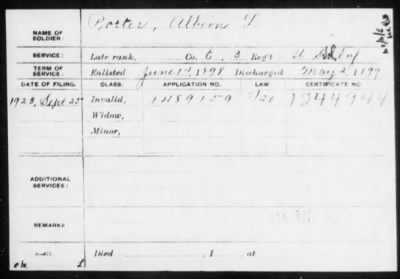 NAME OF SOLDIER: Porter, Albion L
SERVICE: Late rank, Co. E, 3 Regt U S Inf
TERM OF SERVICE: Enlisted June 17, 1898 Discharged May 2, 1899
DATE OF FILING. CLASS. APPLICATION NO. LAW. CERTIFICATE NO.
1923, Sept 25 Invalid, 1489159 1244944
Widow,
Minor,
ADDITIONAL SERVICES:
REMARKS:
Died , 1 , at